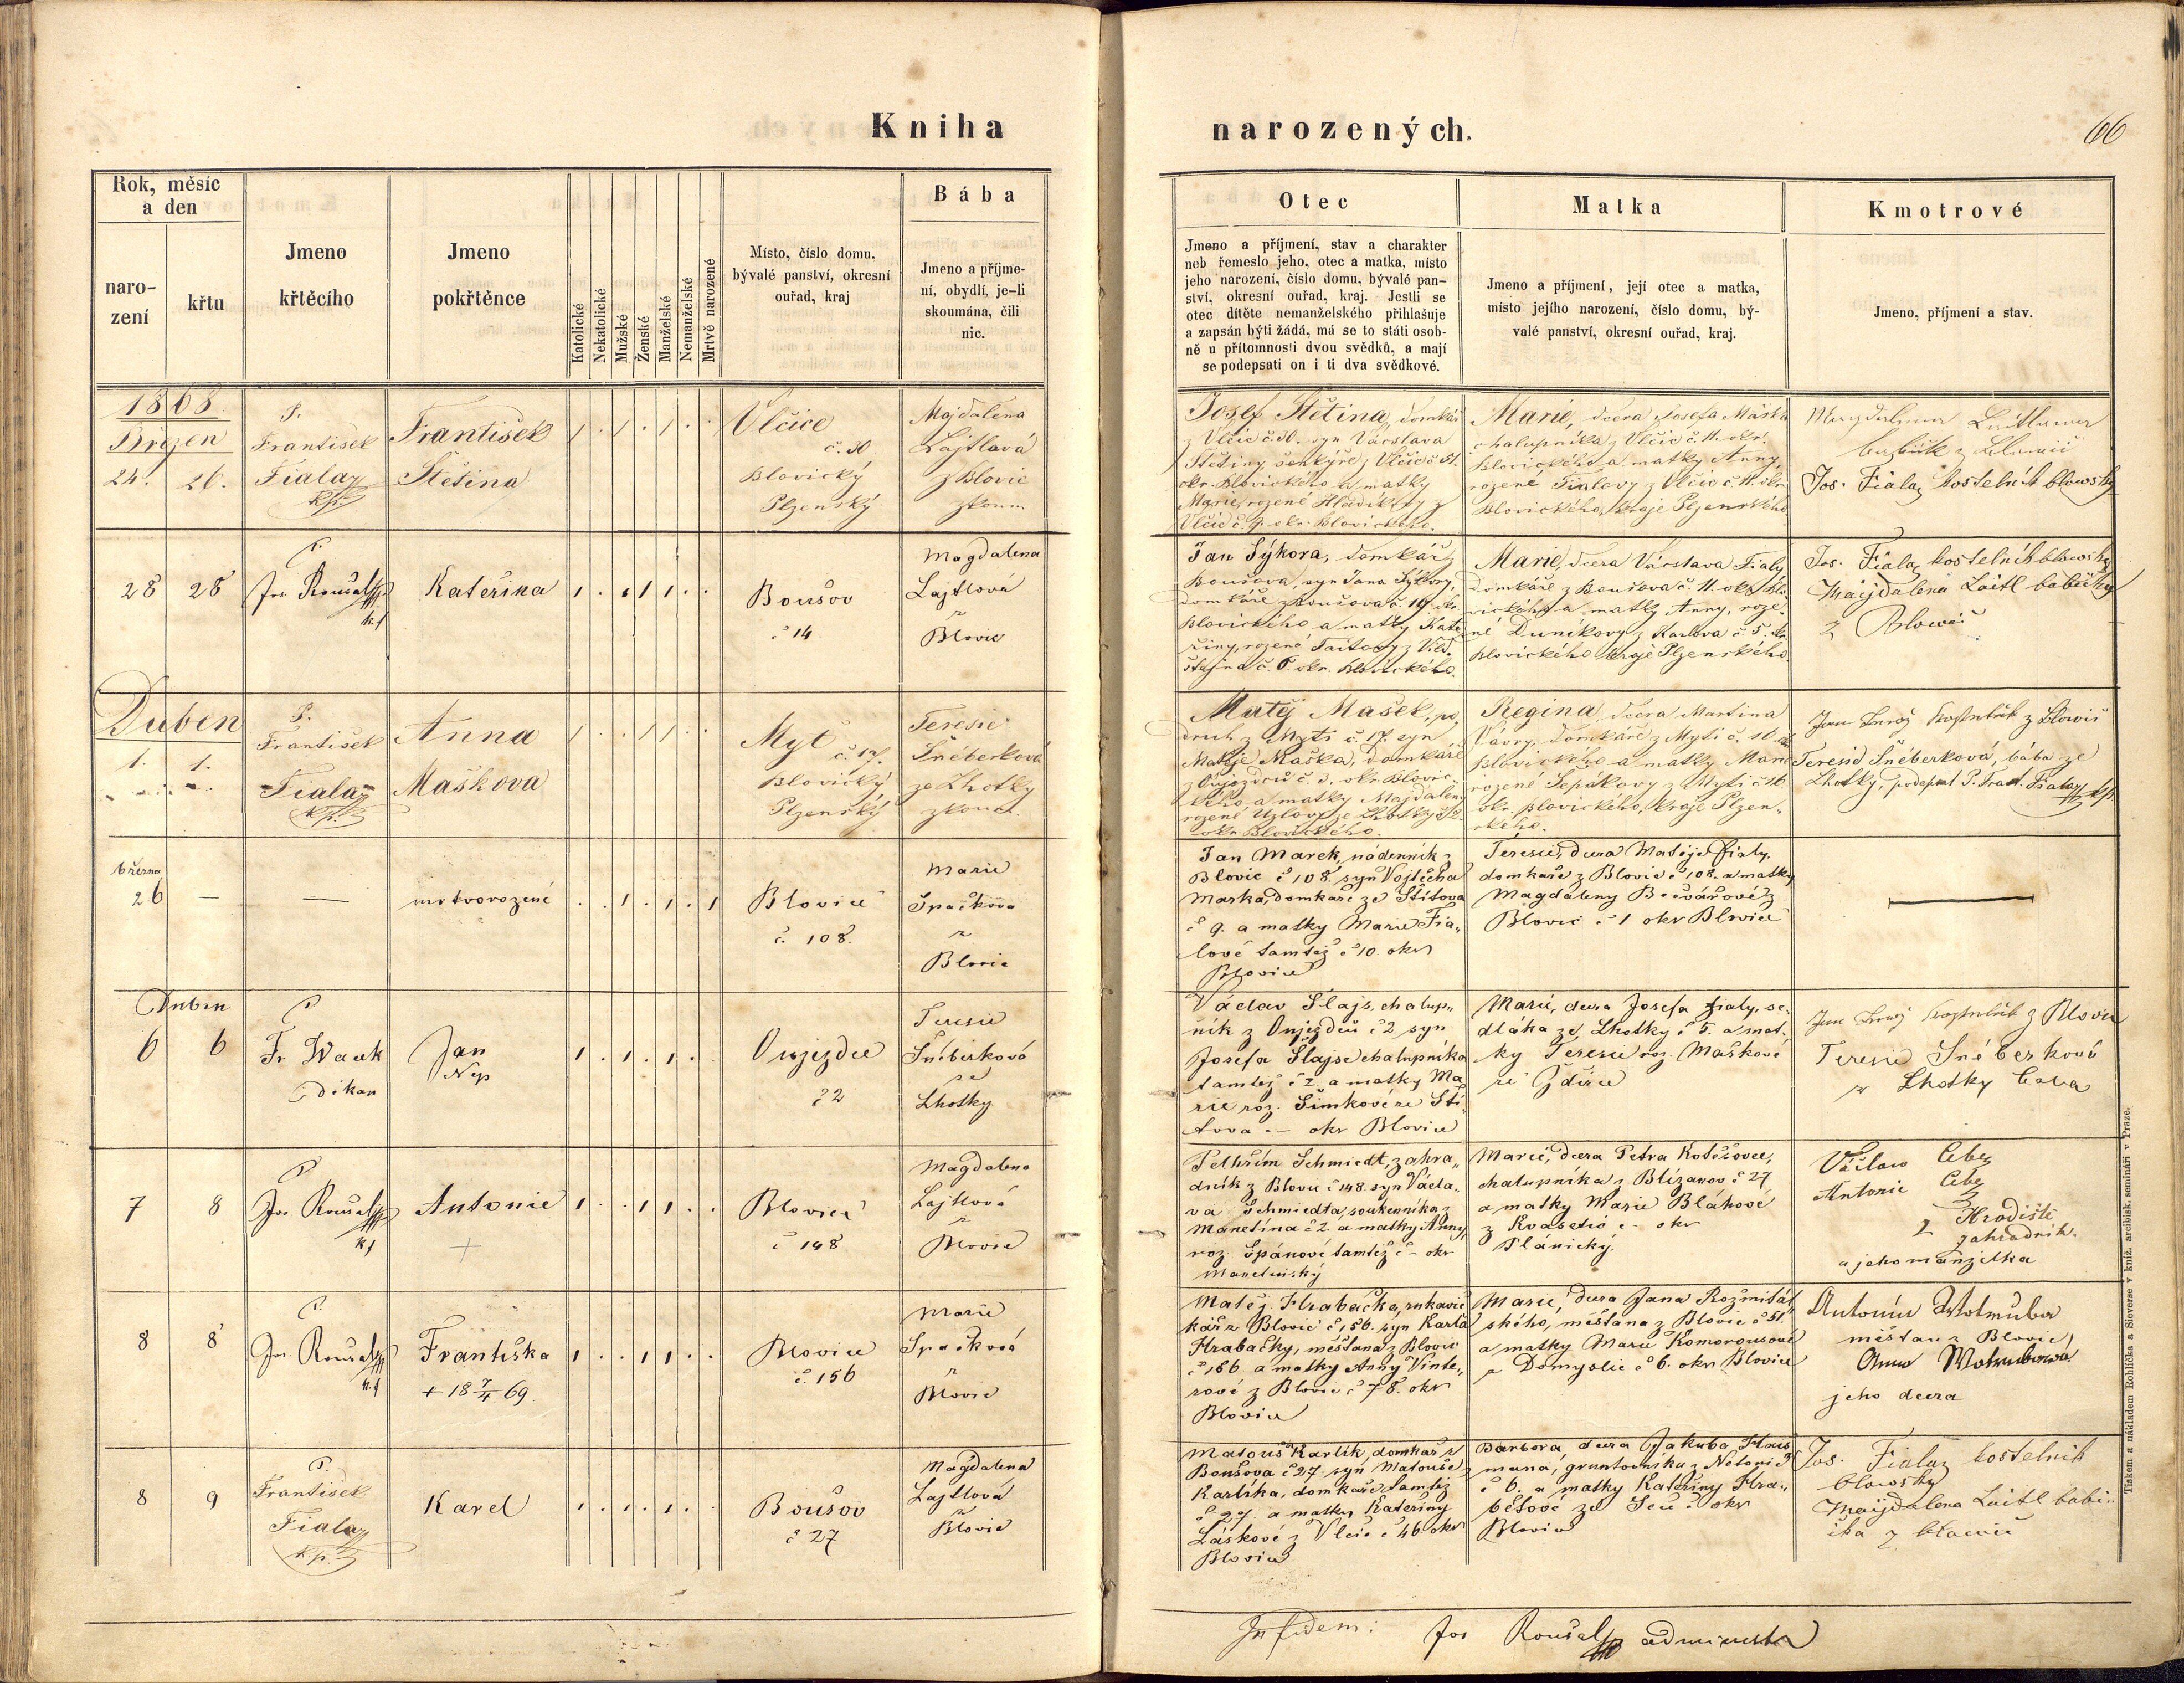 Kniha
narozených.
66
Rok, měsíc
a den
naro-
zení
křtu
Jmeno
křtěcího
Jmeno
pokřtěnce
Katolické
Nekatolické
Mužské
Ženské
Manželské
Nemanželské
Mrtvě narozené
Místo, číslo domu.
bývalé panství, okresní
ouřad, kraj
Bába
Jmeno a příjme-
ní, obydlí, je-li
skoumána, čili
nic.
Otec
Jmeno a příjmení, stav a charakter
neb řemeslo jeho, otec a matka, místo
jeho narození, číslo domu, bývalé pan-
ství, okresní ouřad, kraj. Jestli se
otec dítěte nemanželského přihlašuje
a zapsán býti žádá, má se to státi osob-
ně u přítomnosti dvou svědků, a mají
se podepsati on i ti dva svědkové.
Matka
Jmeno a příjmení, její otec a matka,
místo jejího narození, číslo domu, bý-
valé panství, okresní ouřad, kraj.
Kmotrové
Jmeno, příjmení a stav.
1868.
Březen
24. 26.
P.
František
Fiala
kp.
František
Štětina
Vlčice
č. 30.
Blovický
Plzenský
Majdalena
Lajtlová
z Blovic
zkoum.
Josef Štětina, domkář
z Vlčic č. 30. syn Václava
Štětiny, šenkýře z Vlčic č. 51.
okr. Blovického a matky
Marie, rozené Hladíkovy z
Vlčic č. 9. okr. Blovického.
Marie, dcera Josefa
chalupníka z Vlčic č. 11. okr.
Blovického a matky Anny,
rozené Fialovy z Vlčic č. 11. okr.
Blovického, kraje Plzenského
Jos. Fiala kostelník
28 28
P.
Jos. Roušal
Kateřina
Boušov
č 14
Magdalena
Lajtlová
z
Blovic
Jan Sýkora, domkář z
Boušova, syn Jana Sýkory,
domkáře z Boušova č. 14. okr.
Blovického a matky Kate
řiny, rozené z Vild.
štejna č. 6. okr. Blovického.
Marie, dcera Václava Fialy
domkáře z Boušova č. 11. okr. Blo
vického a matky Anny, roze
né Duníkovy z Karlova č. 5. okr.
Blovického kraje Plzenského
Jos. Fiala kostelník
Majdalena Laitl
z
Duben
1. 1.
P.
František
Fiala
kp.
Anna
Maškova
Myť
č. 17.
Blovický
Plzenský
Teresie
Šnéberková
ze Lhotky
zkouš.
Matěj Mašek, po,
druh z Mytí č. 17. syn
Matěje Maška, domkáře
z Oujezdců č. 3. okr. Blovic-
kého, a matky Majdaleny
rozené Uzlovy ze Lhotky
okr. Blovického.
Regina, dcera Martina
Vávry, domkáře z Mytí č. 16. okr.
Blovického a matky Marie
rozené Šepákovy z Mytí č. 16.
okr. Blovického, kraje Plzen-
ského.
Jan kostelník z Blovic
Teresie Šnéberková, bába ze
Lhotky, podepsal P. Frant. Fiala kp.
března
26 —
—
mrtvorozené
Blovice
č. 108.
Marie
Špačkova
z
Blovic
Jan Marek, nádenník z
Blovic č 108 syn Vojtěcha
Marka, domkáře ze Štítova
č 9. a matky Marie Fia„
lové tamtéž č 10. okr
Blovice
Teresie, dcera Matěje Fialy,
domkáře z Blovic č 108. a matky
Magdaleny Bečvářové z
Blovic č 1 okr Blovice
—
Duben
6 6
P.
Fr Wacek
děkan
Jan
Nep
Oujezdce
č 2
Teresie
Šnéberková
ze
Lhotky
Václav Šlajs, chalup„
ník z Oujezdců č 2, syn
Josefa Šlajse chalupníka
tamtéž č 2. a matky Ma
rie roz. Šimkové ze Ští
tova — okr Blovice
Marie, dcera Josefa Fialy, se-
dláka ze Lhotky č 5. a mat-
ky Teresie roz. Maškové
ze Ždírce
Jan kostelník z Blovic
Teresie Šnéberková
z Lhotky baba
7 8
P.
Jos Roušal
Antonie
+
Blovice
č 148
Magdalena
Lajtlová
z
Blovic
Pelhřím Schmiedt, zahra„
dník z Blovic č 148 syn Václa„
va Schmiedta, soukenníka z
Manetína č 2. a matky Anny,
roz. Špánové tamtéž č — okr
Manetínský
Marie, dcera Petra Kotěšovce,
chalupníka z Blížanov č 27
a matky Marie Bláhové
z Kvasetic č — okr
Plánický.
Václav
Antonie
z Hradiště
zahradník.
a jeho manželka
8 8
P.
Jos. Roušal
Františka
+ 18 7/4 69.
Blovice
č. 156
Marie
Špačková
z
Blovic
Matěj Hrabačka, rukavič
kář z Blovic č 156. syn Karla
Hrabačky, měšťana z Blovic
č 156. a matky Anny Vinte„
rové z Blovic č 78. okr
Blovice
Marie, dcera Jana Rožmitál
ského, měšťana z Blovic č 51.
a matky Marie Komorousové
z Domyslic č 6. okr Blovice
Antonín Wotruba
měšťan z Blovic,
Anna Wotrubova
jeho dcera
8 9
P.
František
Fiala
kp.
Karel
Boušov
č 27
Magdalena
Lajtlová
z
Blovic
Matouš Karlík, domkář z
Boušova č 27. syn Matouše
Karlíka, domkáře tamtéž
č 27. a matky Kateřiny
Láskové z Vlčic č 46 okr
Blovice
Barbora, dcera Jakuba Hais
mana, gruntovníka z Netonic
č 6. a matky Kateřiny Hra„
běové ze Seče okr
Blovice
Jos. Fiala kostelník
Majdalena Laitl babi„
čka z
In fidem: Jos Roušal
Tiskem a nákladem Rohlíčka a Sieverse v kníž. arcibisk. semináři v Praze.